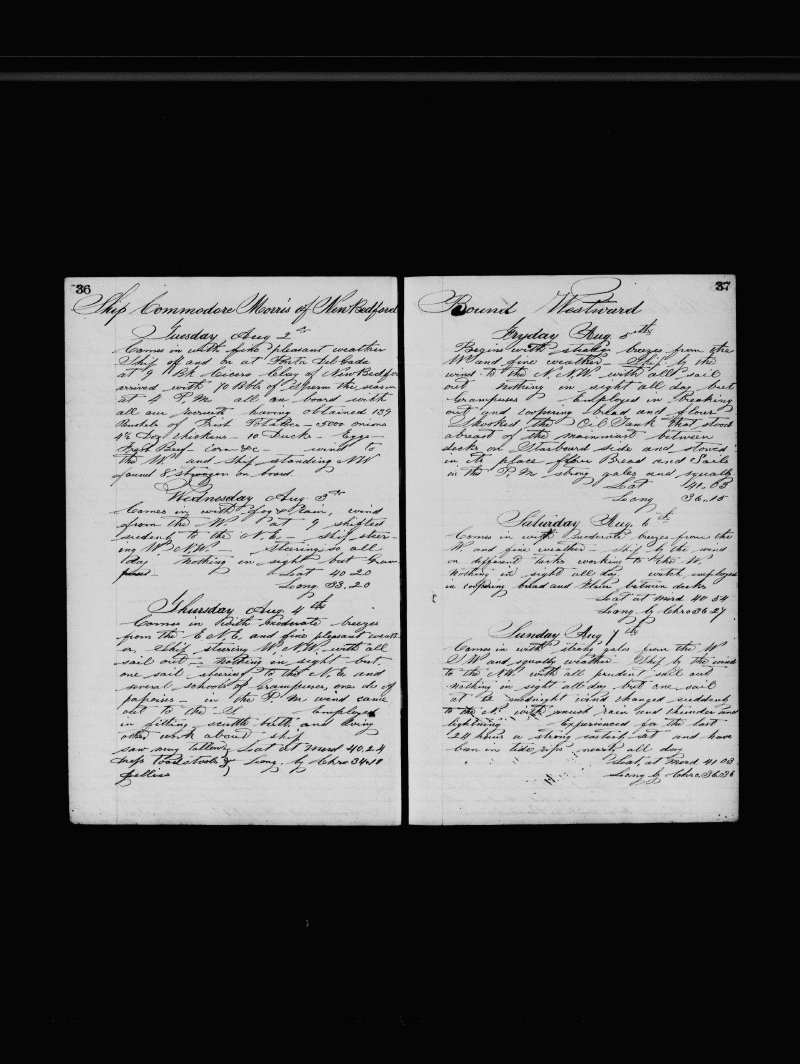 36
Ship Commodore Morris of New Bedford
Tuesday Aug 2nd
Comes in with fine pleasant weather
Ship off and on at Ponta Delgada
at 9 Bk Cicero Clay of New Bedford
arrived with 70 Bbls of Sperm this season
at 4 P.M. all on board with
all our recruit having obtained 139
Bushels of Irish Potatoes - 5000 onions
4½ Doz chickens - 10 Ducks - Eggs -
Fresh Beef corn &c - wind to
the W. and Ship standing NW
found 8 on board
Wednesday Aug 3rd
Comes in with fog & rain, wind
from the W at 9 shifted
sudent to the N.E - ship steer-
ing W.N.W. - Steering so all
day nothing in sight but Gram
puses - Lat 40.20
Long. 33.20
Thursday Aug 4th
Comes in With moderate breezes
from the E.N.E. and fine pleasant weath-
er, Ship steering W.N.W. with all
sail out - nothing in sight but
one sail steering to the N.E and
several schools of Grampuses, one do of
in the P.M. wind came
out to the S Employed
in fitting scuttle butt and doing
other work about ship
saw Lat at Merd 40.24
Long. by Chro 34.10
37
Bound Westward
Fryday Aug 5th
Begins with breezes from the
W and fine weather - Ship by the
wind to the N.N.W. with all sail
out nothing in sight all day but
Grampuses Employed in breaking
out and coopering bread and flour
the Oil Tank that stood
abreast of the mainmast between
decks on Starboard side and stowed
in its place flour Bread and Sails
in the P.M strong gales and squalls
Lat 41.03
Long 36.15
Saturday Aug. 6th
Comes in with moderate breezes from the
W. and fine weather - Ship by the wind
on different tacks working to the W.
Nothing in sight all day watch employed
in coopering bread and flour between decks
Lat at Merd 40.54
Long by Chro 36.27
Sunday Aug 7th
Comes in with strong gales from the W
S.W and squally weather Ship by the wind
to the N.W. with all prudent sail out
nothing in sight all day but one sail
at 12 midnight wind changed suddent
to the N. with much rain and thunder and
lightning Experienced for the last
24 hours a strong easterly set and have
ben in tide rips nearly all day
Lat. at Merd 41.03
Long by Chro. 36.36